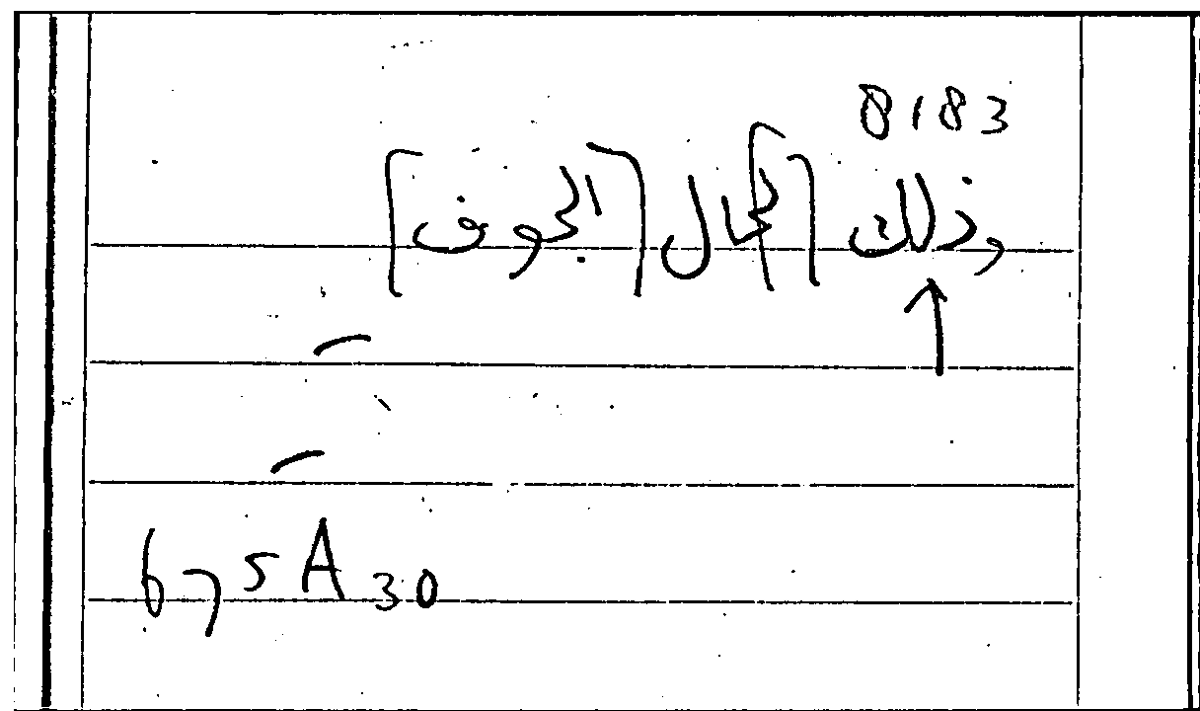 8183
وذلك [كمال] [الجوف]
675A30